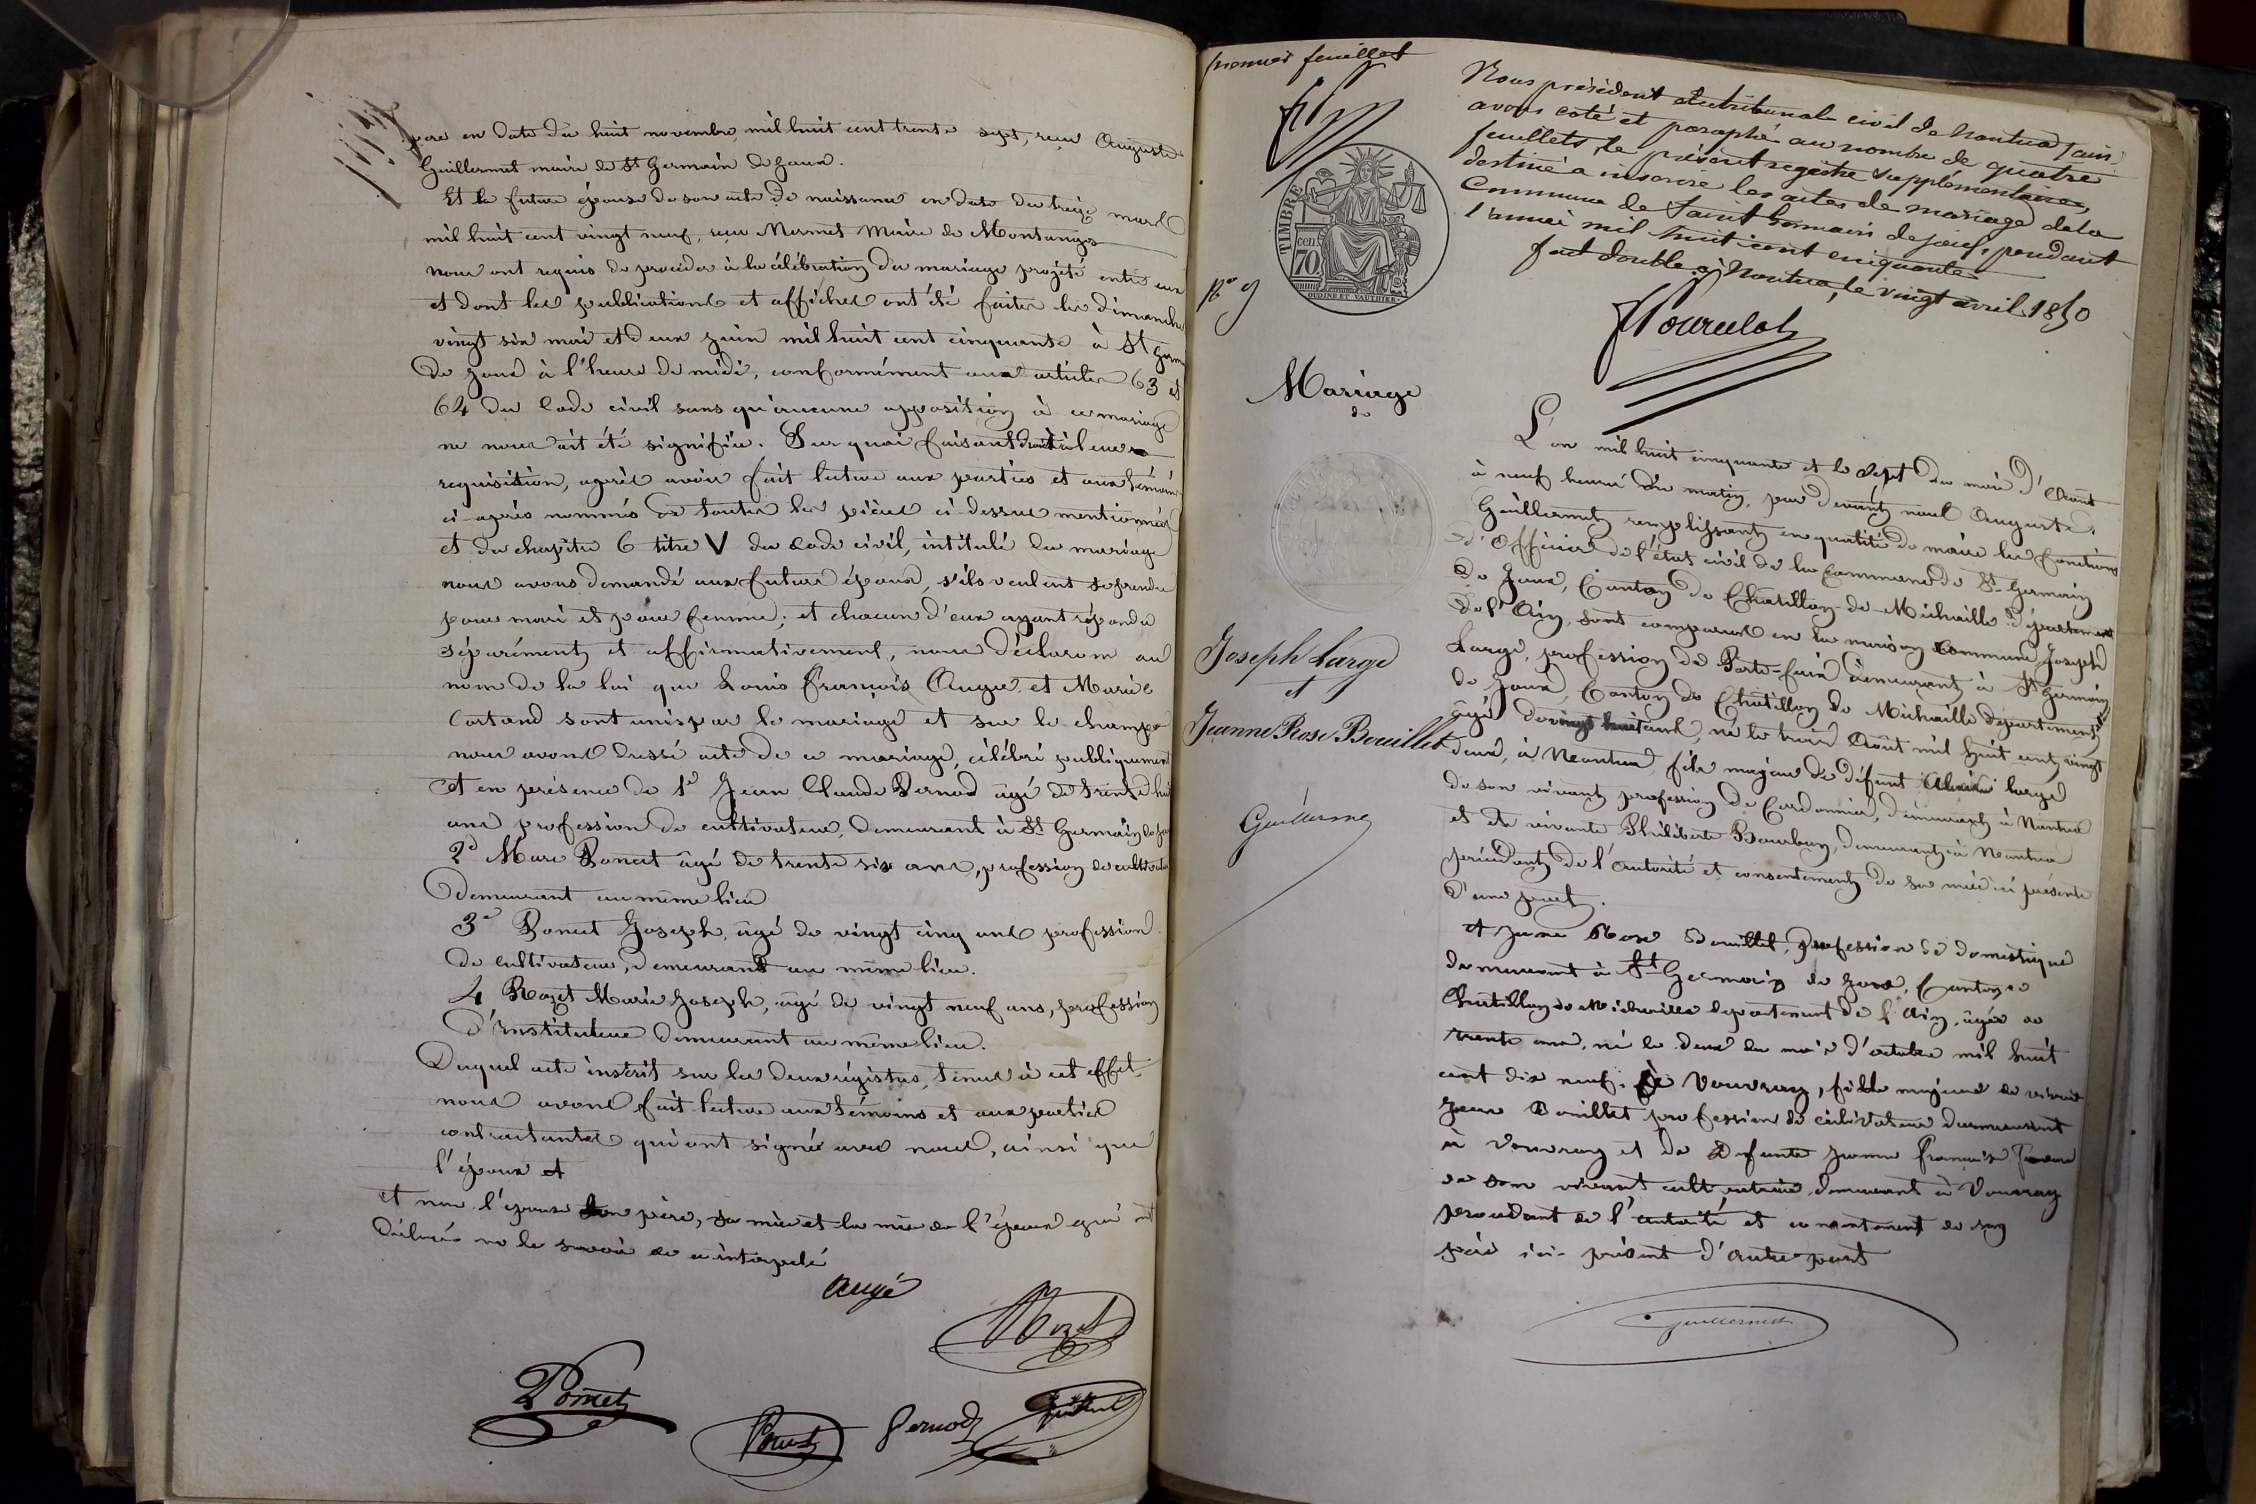 père en date du huit novembre mil huit cent trente sept, reçu Auguste
Guillermet maire de St Germain de Joux.
Et la future épouse de son acte de naissance en date du treize mars
mil huit cent vingt neuf, reçu Mermet Maire de Montanges
nous ont requis de procéder à la célébration du mariage projeté entre eux
et dont les publications et affiches ont été faites les dimanches
vingt six mai et deux juin mil huit cent cinquante à St Germ
de Joux à l'heure de midi, conformément aux articles 63 et
64 du Code civil sans qu'aucune opposition à ce mariage
ne nous ait été signifiée. Sur quoi faisant droit à leur
requisition, après avoir fait lecture aux parties et aux témoins
ci-après nommés de toutes les pièces ci-dessus mentionnées
et du chapitre 6 titre V du Code civil, intitulé du mariage
nous avons demandé aux futurs époux, s'ils veulent se prendre
pour mari et pour femme; et chacun d'eux ayant répondu
séparément et affirmativement, nous déclarons au
nom de la loi que Louis François Augé et Marie
Cortand sont unis par le mariage et sur le champ
nous avons dressé acte de ce mariage, célébré publiquement
et en présence de 1° Jean Claude Pernod âgé de trente huit
ans profession de cultivateur, demeurant à St Germain de Jou
2° Marc Poncet âgé de trente six ans, profession de cultivateur
demeurant au même lieu
3° Poncet Joseph, âgé de vingt cinq ans profession
de cultivateur, demeurant au même lieu.
4 Rozet Marie Joseph, âgé de vingt neuf ans, profession
d'Instituteur demeurant au même lieu.
Duquel acte inscrit sur les deux régistres, tenus à cet effet
nous avons fait lecture aux témoins et aux parties
contractantes qui ont signé avec nous, ainsi que
l'époux et
et non l'épouse son père, sa mère et la mère de l'époux qui ont
déclarés ne le savoir de ce interpelé
Augé
Rozet
Poncet
Poncet
Pernod
Guillermet
premier feuillet
Nous président du tribunal civil de Nantua, Ain,
avons coté et paraphé au nombre de quatre
feuillets, le présent registre supplémentaire,
destiné à inscrire les actes de mariage de la
Commune de Saint Germain de Joux, pendant
l'année mil huit cent cinquante
fait double à Nantua, le vingt avril 1850
TIMBRE
70 cen
OUDINÉ ET VAUTHIER
No 9
Mariage
de
Joseph Large
et
Jeanne Rose Bouillet
Guillermet
L'an mil huit cinquante et le sept du mois d'Août
à neuf heures du matin, par devant nous Auguste
Guillermet, remplissant en qualité de maire les fonctions
d'Officier de l'état civil de la Commune de St Germain
de Joux, Canton de Châtillon-de-Michaille département
de l'Ain, sont comparus en la maison Commune Joseph
Large, profession de Porte-faix demeurant à St Germain
de Joux, Canton de Châtillon de Michaille département
âgé de vingt huit ans, né le trois Août mil huit cent vingt
deux, à Nantua, fils majeur de défunt Large
de son vivant profession de Cordonnier, demeurant à Nantua
et de vivante Philiberte Bourbon, demeurant à Nantua
procédant de l'autorité et consentement de sa mère ici présente
d'une part.
et Jeanne Rose Bouillet, profession de domestique
demeurant à St Germain de Joux, Canton de
Châtillon de Michaille département de l'Ain, âgée de
trente ans, né le deux du mois d'octobre mil huit
cent dix neuf, à Vouvray, fille majeure de vivant
Jean Bouillet profession de cultivateur demeurant
à Vouvray et de Defunte Jeanne Françoise
de son vivant cultivatrice, demeurant à Vouvray
procédant de l'autorité et consentement de son
père ici présent d'autre part
Guillermet